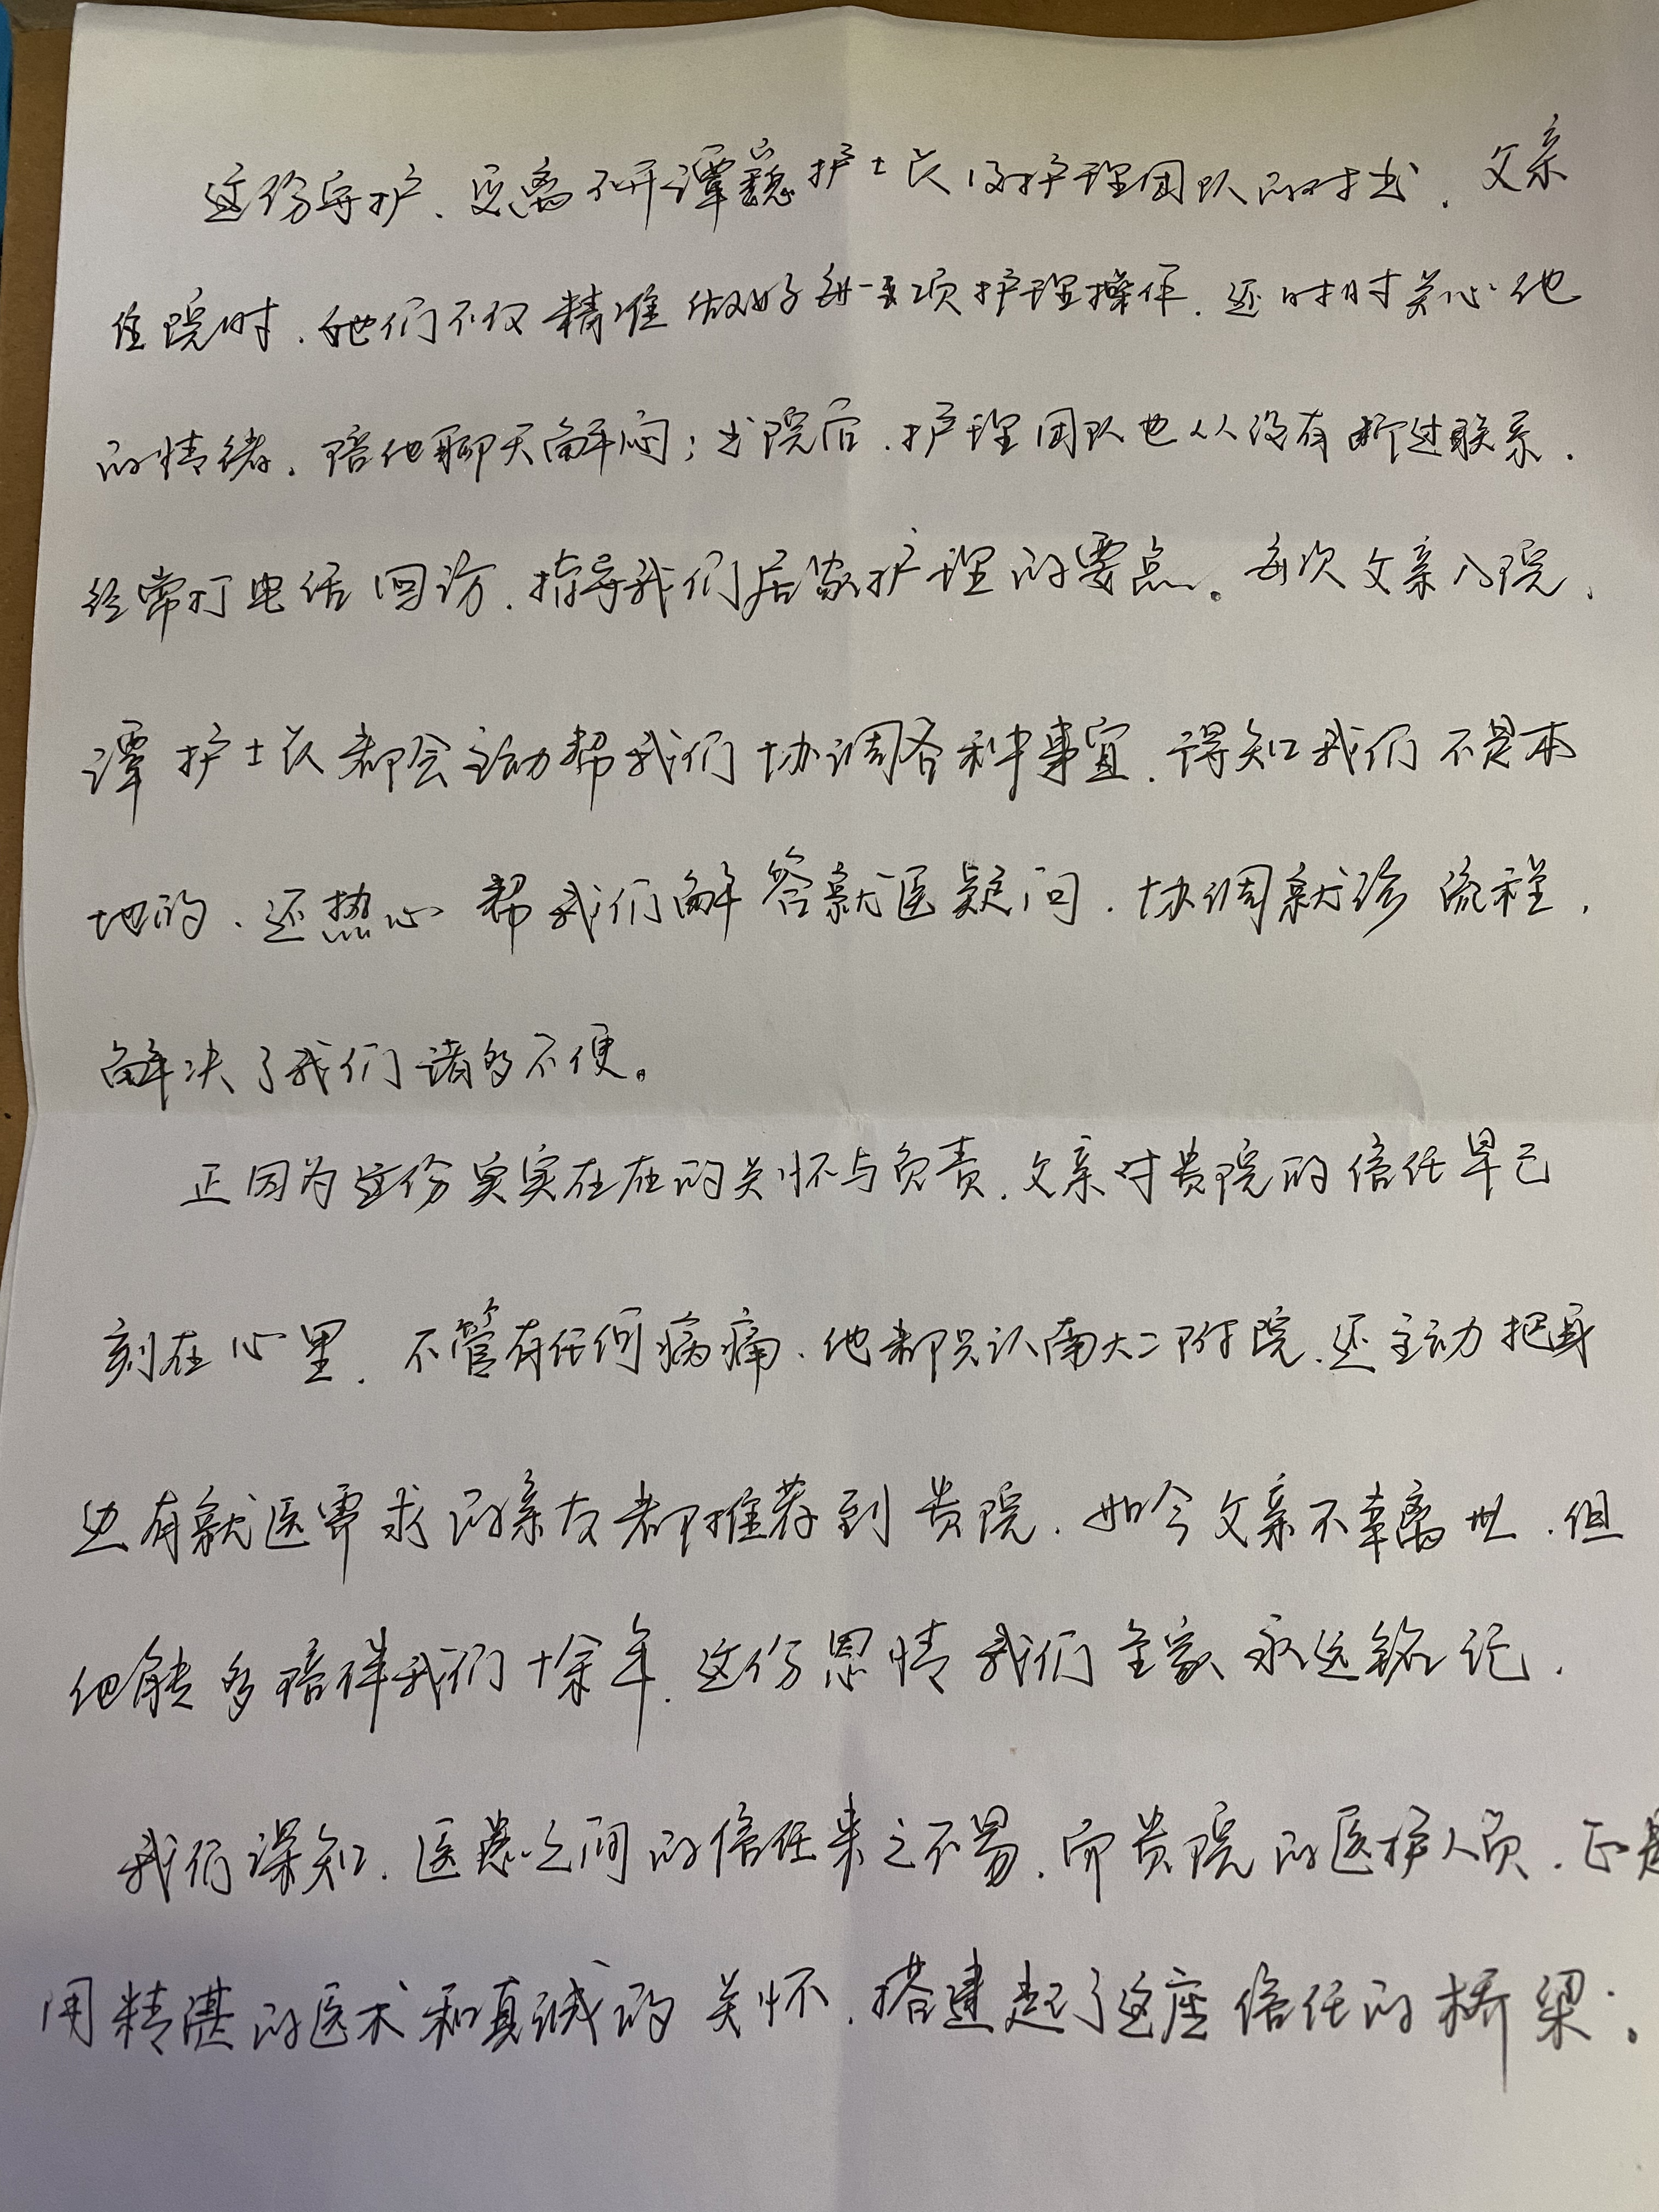 这份守护、更离不开谭 护士长及护理团队的付出. 父亲
住院时. 她们不仅精准做好每一项护理操作. 还时时关心他
的情绪. 陪他聊天解闷; 出院后. 护理团队也从没有断过联系.
经常打电话回访. 指导我们居家护理的要点。每次父亲入院.
谭护士长都会主动帮我们协调各种事宜. 得知我们不是本
地的、还热心帮我们解答就医疑问. 协调就诊流程.
解决了我们诸多不便。
正因为这份实实在在的关怀与负责. 父亲对贵院的信任早已
刻在心里. 不管有任何病痛、他都只认南大二附院. 还主动把身
边有就医需求的亲友都推荐到贵院. 如今父亲不幸离世. 但
他能多陪伴我们十余年. 这份恩情我们全家永远铭记.
我们深知. 医患之间的信任来之不易. 而贵院的医护人员. 正是
用精湛的医术和真诚的关怀. 搭建起了这座信任的桥梁;